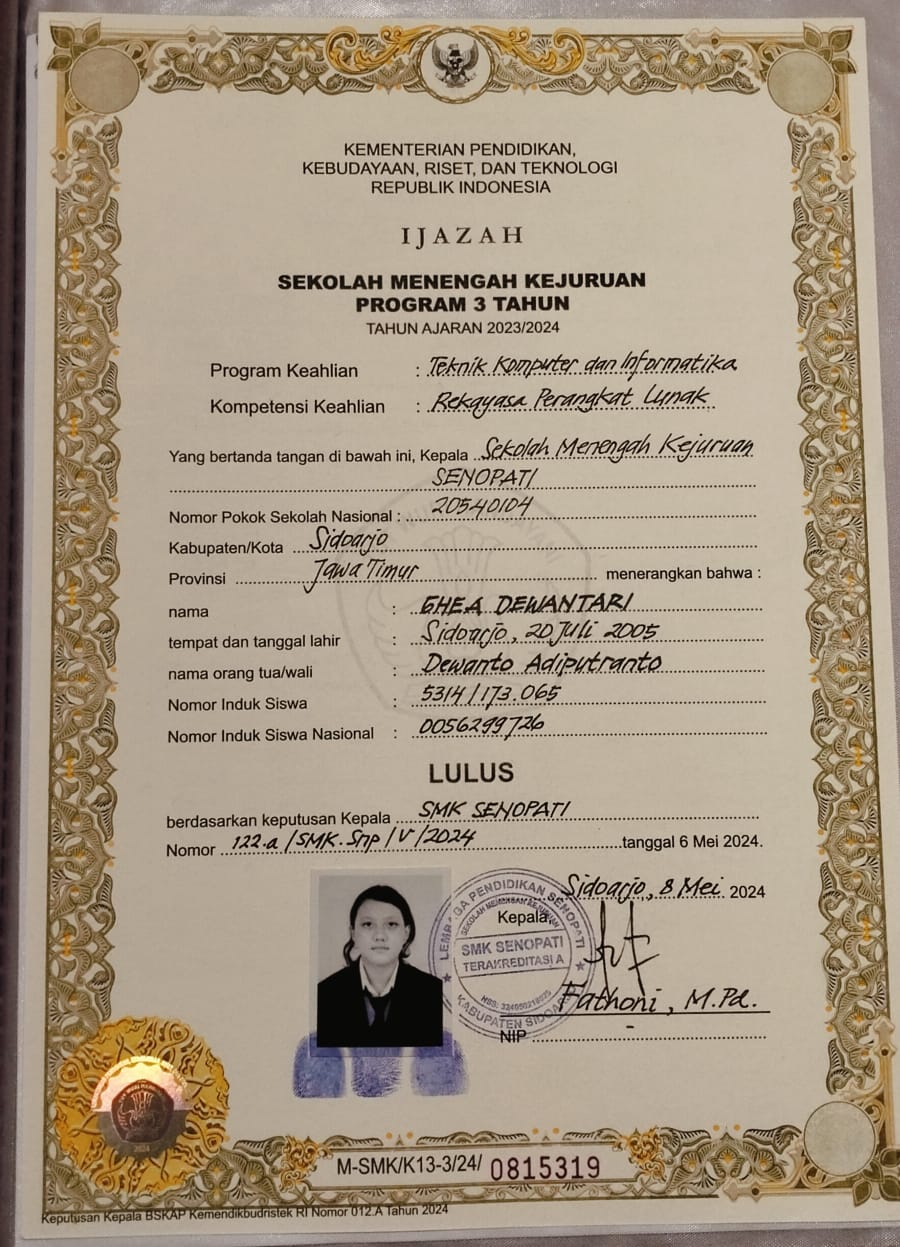 KEMENTERIAN PENDIDIKAN,
KEBUDAYAAN, RISET, DAN TEKNOLOGI
REPUBLIK INDONESIA
IJAZAH
SEKOLAH MENENGAH KEJURUAN
PROGRAM 3 TAHUN
TAHUN AJARAN 2023/2024
Program Keahlian : Teknik Komputer dan Informatika
Kompetensi Keahlian : Rekayasa Perangkat Lunak
Yang bertanda tangan di bawah ini, Kepala Sekolah Menengah Kejuruan
SENOPATI
Nomor Pokok Sekolah Nasional : 20540104
Kabupaten/Kota Sidoarjo
Provinsi Jawa Timur menerangkan bahwa :
nama : GHEA DEWANTARI
tempat dan tanggal lahir : Sidoarjo, 20 Juli 2005
nama orang tua/wali : Dewanto Adiputranto
Nomor Induk Siswa : 5314/173.065
Nomor Induk Siswa Nasional : 0056299726
LULUS
berdasarkan keputusan Kepala SMK SENOPATI
Nomor 122.a/SMK.Snp/V/2024 tanggal 6 Mei 2024.
Sidoarjo, 8 Mei 2024
Kepala
LEMBAGA PENDIDIKAN SENOPATI
SEKOLAH MENENGAH KEJURUAN
SMK SENOPATI
TERAKREDITASI A
KABUPATEN SIDOARJO
Fathoni, M.Pd.
NIP -
M-SMK/K13-3/24/ 0815319
Keputusan Kepala BSKAP Kemendikbudristek RI Nomor 012.A Tahun 2024